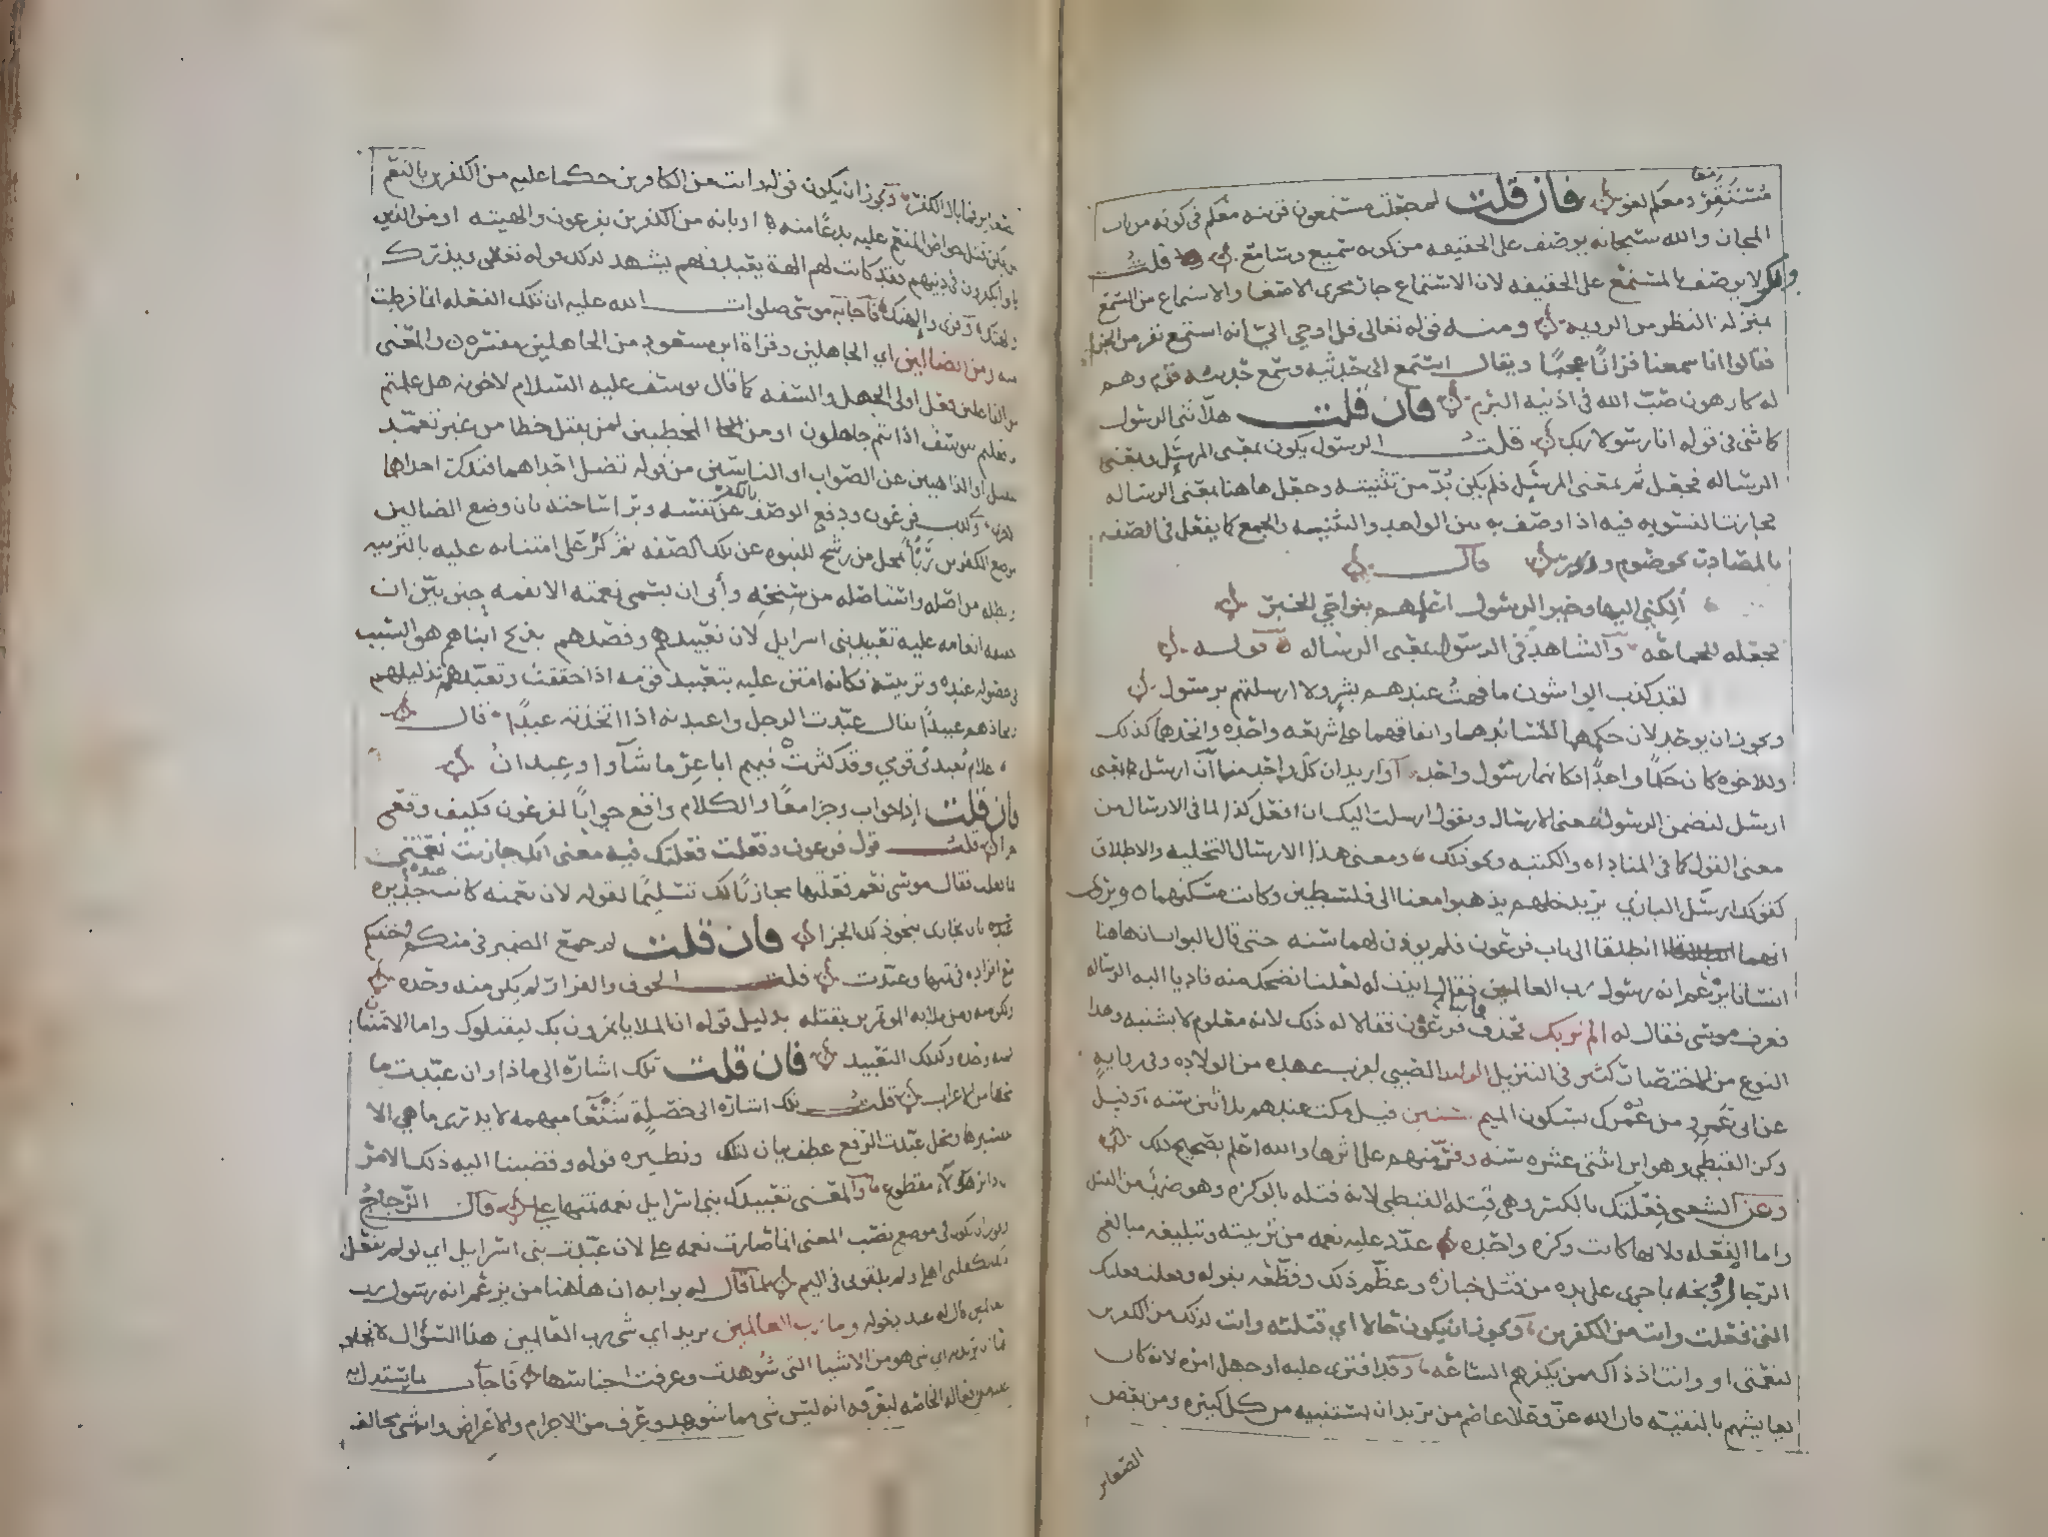 مستقر ومعكم لغو فان قلت لم جعلت مستمعون قرينه معكم في كونه من باب
المجاز والله سبحانه يوصف على الحقيقه من كونه سميع وسامع قلت
ولكن لا يوصف بالمستمع على الحقيقه لان الاستماع جار مجرى الاصغا والاستماع من السمع
بمنزله النظر من الرويه ومنه قوله تعالى قل اوحي الي أنه استمع نفر من الجن
فقالوا انا سمعنا قرانًا عجبًا ويقال استمع الى حديثه وسمع حديثه قوم وهم
له كارهون صب الله في اذنيه البرم فان قلت هلّا ثنى الرسول
كما ثنى في قوله انا رسولا ربك قلت الرسول يكون بمعنى المرسَل وبمعنى
الرساله فجعل ثم بمعنى المرسَل فلم يكن بُدّ من تثنيته وجعل هاهنا بمعنى الرساله
فجازت التسويه فيه اذا وصف به بين الواحد والتثنيه والجمع كما يفعل في الصفه
بالمصادر نحو صوم وزور قال
ألِكني اليها وخير الرسول اعلمهم بنواحي الخبر
فجعله للجماعه والشاهد في الرسول بمعنى الرساله قوله
لقد كذب الواشون ما فهتُ عندهم بسر ولا ارسلتهم برسول
ويجوز ان يوحد لان حكمهما لتساندهما واتفاقهما على شريعه واحده واتحدهما كذلك
وللاخوه كان حكمًا واحدًا فكانهما رسول واحد او اريد ان كل واحد منا أنْ ارسل بمعنى
ارسل لتضمن الرسول معنى الارسال وتقول ارسلت اليك ان افعل كذا لما في الارسال من
معنى القول كما في المناداه والكتبه ونحو ذلك ومعنى هذا الارسال التخليه والاطلاق
كقولك ارسل البازي يريد خلهم يذهبوا معنا الى فلسطين وكانت مسكنهما ويروى
انهما انطلقا الى باب فرعون فلم يوذن لهما سنه حتى قال البواب ان هاهنا
انسانا يزعم انه رسول رب العالمين فقال ايذن له لعلنا نضحك منه فاديا اليه الرساله
فعرف موسى فقال له الم نربك حذف فاتيا فرعون فقالا له ذلك لانه معلوم لا يشتبه وهذا
النوع من الاختصار كثير في التنزيل الوليد الصبي لقرب عهده من الولاده وفي روايهٍ
عن ابي عَمرٍو من عُمْرك بسكون الميم سنين قيل مكث عندهم ثلاثين سنه وقيل
وكز القبطي وهو ابن اثنتي عشره سنه وفرّ منهم على اثرها والله اعلم بصحيح ذلك
وعن الشعبي فِعْلتك بالكسر وهي قتله القبطي لانه قتله بالوكزه وهو ضرب من القتل
واما الفَعله فلانها كانت وكزه واحده عدّد عليه نعمه من تربيته وتبليغه مبالغ
الرجال ووبّخه بما جرى على يده من قتل خبازه وعظّم ذلك وفظّعه بقوله وفعلت فعلتك
التي فعلت وانت من الكفرين ويجوز ان يكون حالا اي قتلته وانت لذلك من الكفرين
لنعمتي او وانت اذ ذاك ممن يكفرهم الساعه وقد افترى عليه او جهل امره لانه كان
يعايشهم بالتقيه فان الله عز وعلا عاصم من يريد ان يستنبيه من كل كبيره ومن بعض
الصغاير
ويجوز ان يكون قوله وانت من الكافرين حكما عليه من الكفرين بالنعم
عليه بدعًا منه او بانه من الكفرين بفرعون والهيته او من الذين
كانوا يكفرون في دينهم فقد كانت لهم الهة يعبدونهم يشهد لذلك قوله تعالى ويذرك
والهتك وقرى وإلهتك فأجابه موسى صلوات الله عليه ان تلك الفعله انما فرطت
منه ومن الضالين اي الجاهلين وقراة ابن مسعود من الجاهلين مفسره والمعنى
من الفاعلين فعل اولي الجهل والسفه كما قال يوسف عليه السلام لاخوته هل علمتم
ما فعلتم بيوسف اذ انتم جاهلون او من المخطيين كمن يقتل خطا من غير تعمّد
للقتل او الذاهبين عن الصواب او الناسين من قوله تضل احداهما فتذكر احداهما
الاخرى وكذب فرعون ودفع الوصف بالكفر عن نفسه وبرا ساحته بان وضع الضالين
موضع الكفرين رَبًّا بمحل من رشح للنبوه عن تلك الصفه ثم كرّ على امتنانه عليه بالتربيه
فابطله من اصله واستاصله من سنخه وأبى ان يسمى نعمته الا نقمه حين بيّن ان
حقيقه انعامه عليه تعبيد بني اسرايل لان تعبيدهم وقصدهم بذبح ابنائهم هو السبب
في حصوله عنده وتربيته فكانه امتن عليه بتعبيد قومه اذا حققت وتعبّدهم تذليلهم
واتخاذهم عبيدًا يقال عبّدت الرجل واعبدته اذا اتخذته عبدًا قال
علام يُعبدني قومي وقد كثرت فيهم اباعِرُ ما شآوا وعِبدانُ
فان قلت إذا جواب وجزا معًا والكلام واقع جوابًا لفرعون فكيف وقع
جزا قلت قول فرعون وفعلت فعلتك فيه معنى انك جازيت نعمتي
بما فعلت فقال موسى نعم فعلتها مجازيًا لك تسليمًا لقوله لان نعمته كانت عنده جديره
بان تجازى بنحو ذلك الجزا فان قلت لم جمع الضمير في منكم وخفتكم
مع افراده في تمنها وعبّدت قلت الخوف والفرار لم يكن منه وحده
ولكن منه ومن ملايه الموتمرين بقتله بدليل قوله ان الملا ياتمرون بك ليقتلوك واما الامتنان
فمنه وحده وكذلك التعبيد فان قلت تلك اشارة الى ماذا وان عبّدت ما
محلها من الاعراب قلت تلك اشاره الى خصلةٍ شَنْعَآ مبهمه لا يدرى ما هي الا
بتفسيرها ومحل ان عبّدت الرفع عطف بيان لتلك ونظيره قوله وقضينا اليه ذلك الامر
ان دابر هولاء مقطوع والمعنى تعبيدك بني اسرايل نعمه تمنها علي وقال الزجاجُ
ويجوز ان يكون في موضع نصب المعنى انما صارت نعمه علي لان عبّدت بني اسرايل اي لو لم تفعل
ذلك لكفلني اهلي ولم يلقوني في اليم لما قال له بوابه ان هاهنا من يزعم انه رسول رب
العالمين قال له عند دخوله وما رب العالمين يريد اي شي رب العالمين هذا السؤال لا يخلو
اما ان يريد به اي شي هو من الاشيا التي شوهدت وعرفت اجناسها فأجاب بما يستدل به
عليه من افعاله الخاصه ليعرّفه انه ليس شي مما شوهد وعرف من الاجرام والاعراض وانه شي مخالف